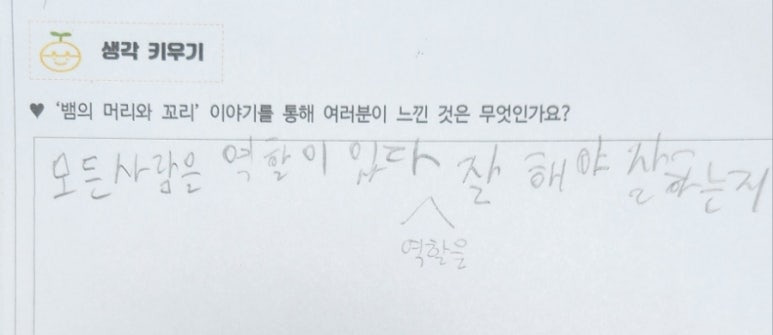 생각 키우기
♥ '뱀의 머리와 꼬리' 이야기를 통해 여러분이 느낀 것은 무엇인가요?
모든사람은 역할이 입다 잘 해야 잘하는지
역할을